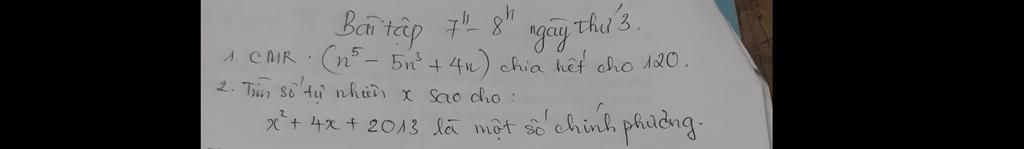 Bài tập 7h - 8h ngày thứ 3.
1. CMR : (n⁵ - 5n³ + 4n) chia hết cho 120.
2. Tìm số tự nhiên x sao cho :
x² + 4x + 2013 là một số chính phương.